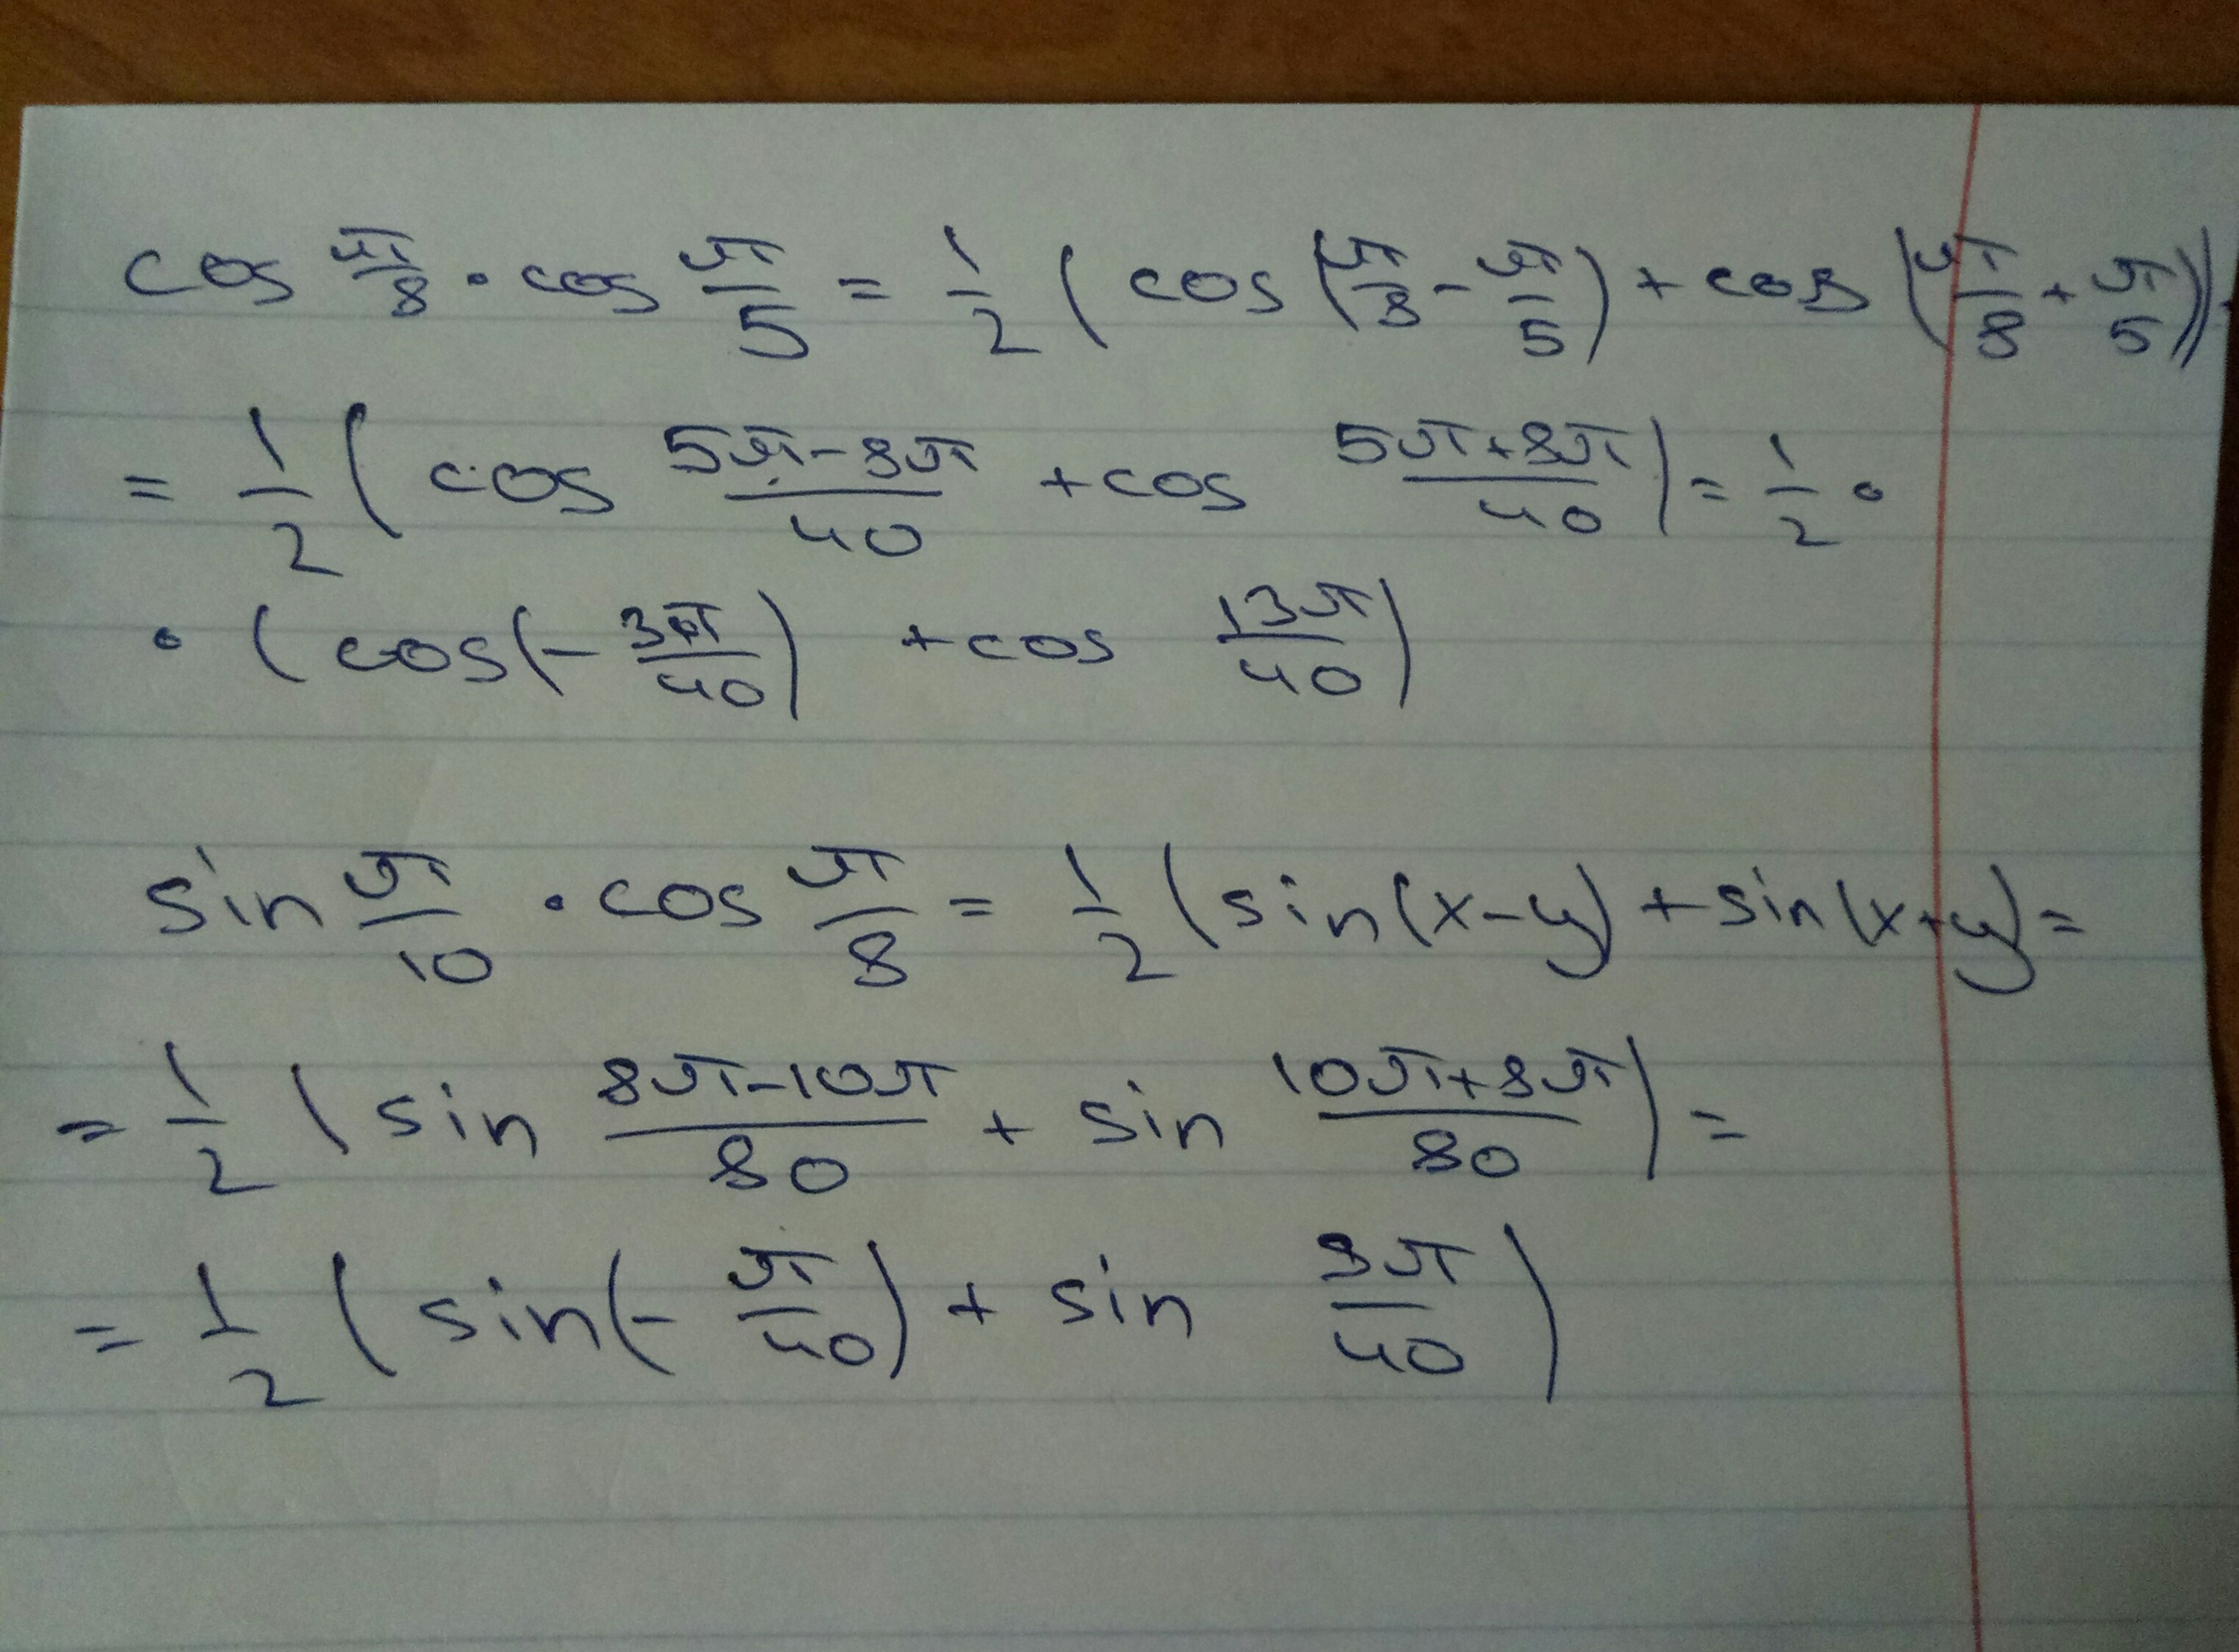 cos π/8 · cos π/5 = 1/2 ( cos (π/8 - π/5) + cos (π/8 + π/5))
= 1/2 ( cos (5π-8π)/40 + cos (5π+8π)/40 ) = 1/2 ·
· ( cos(- 3π/40) + cos 13π/40 )
sin π/10 · cos π/8 = 1/2 ( sin(x-y) + sin(x+y) =
= 1/2 ( sin (8π-10π)/80 + sin (10π+8π)/80 ) =
= 1/2 ( sin(- π/40) + sin 9π/40 )